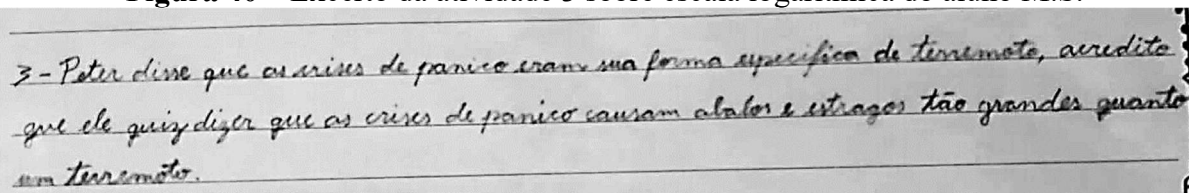 3 - Peter disse que as crises de panico eram sua forma especifica de terremoto, acredito
que ele quiz dizer que as crises de panico causam abalos e estragos tão grandes quanto
um terremoto.